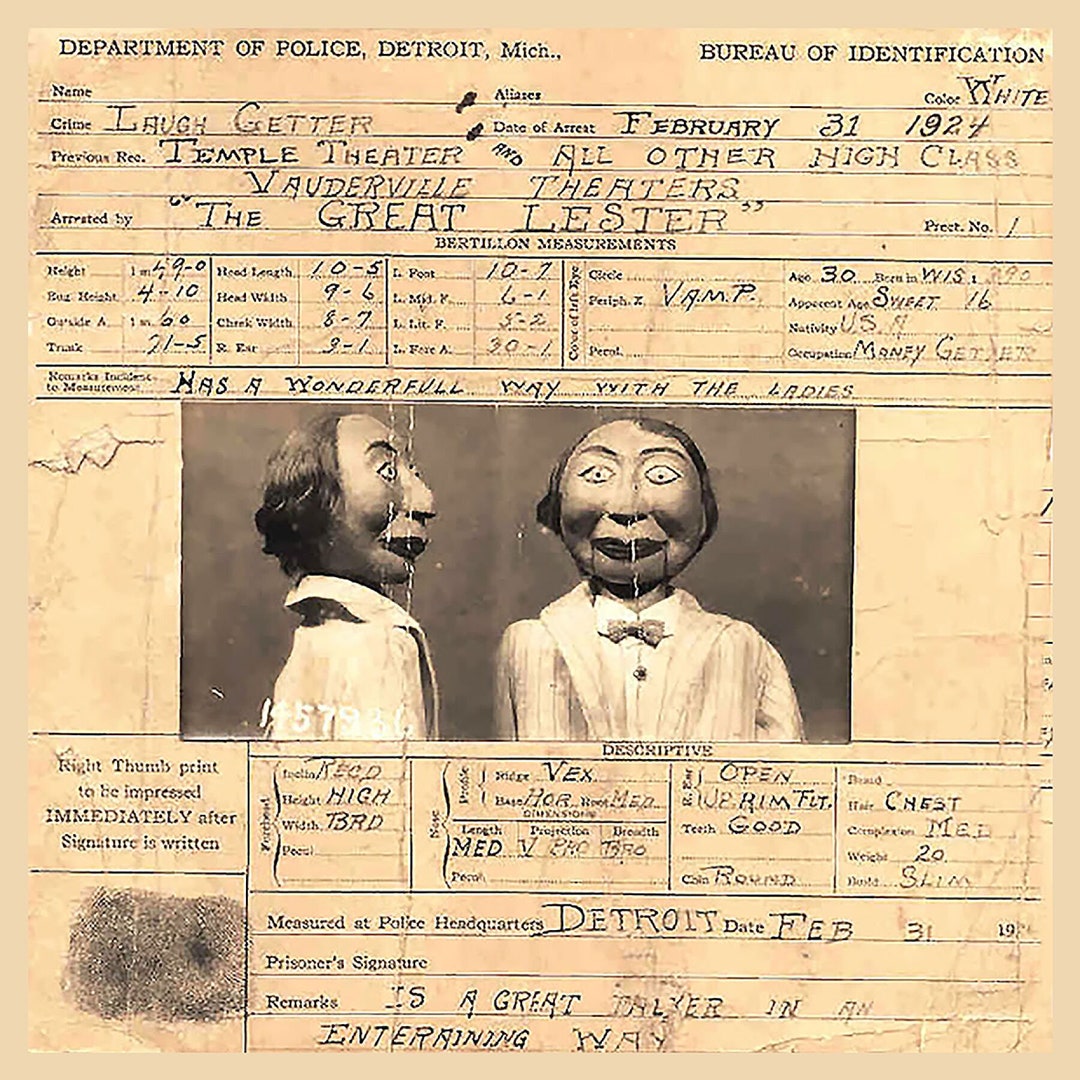 DEPARTMENT OF POLICE, DETROIT, Mich., BUREAU OF IDENTIFICATION
Name Aliases Color WHITE
Crime LAUGH GETTER Date of Arrest FEBRUARY 31 1924
Previous Rec. TEMPLE THEATER AND ALL OTHER HIGH CLASS
VAUDERVILLE THEATERS
Arrested by "THE GREAT LESTER" Prect. No. 1
BERTILLON MEASUREMENTS
Height 1 m 49-0 Head Length 10-5 L. Foot 10-7 Circle Age 30 Born in WIS
Eng. Height 4-10 Head Width 9-6 L. Mid. F. 6-1 Periph. Z. V.A.M.P. Apparent Age SWEET 16
Outside A. 1 m. 60 Cheek Width 8-7 L. Lit. F. 5-2 Nativity U.S.A
Trunk 71-5 R. Ear 3-1 L. Fore A. 30-1 Pecul. Occupation MONEY GETTER
Color of Left Eye
Remarks Incident to Measurement HAS A WONDERFULL WAY WITH THE LADIES
DESCRIPTIVE
Right Thumb print
to be impressed
IMMEDIATELY after
Signature is written
Forehead
Inclin RECD
Height HIGH
Width BRD
Pecul
Nose
Profile
Ridge VEX
Base HOR Root MED
DIMENSIONS
Length Projection Breadth
MED
Pecul
R. Ear
OPEN
UP. RIM FLT.
Teeth GOOD
Chin ROUND
Beard
Hair CHEST
Complexion MED
Weight 20
Build SLIM
Measured at Police Headquarters DETROIT Date FEB 31 19
Prisoner's Signature
Remarks IS A GREAT TALKER IN AN
ENTERAINING WAY